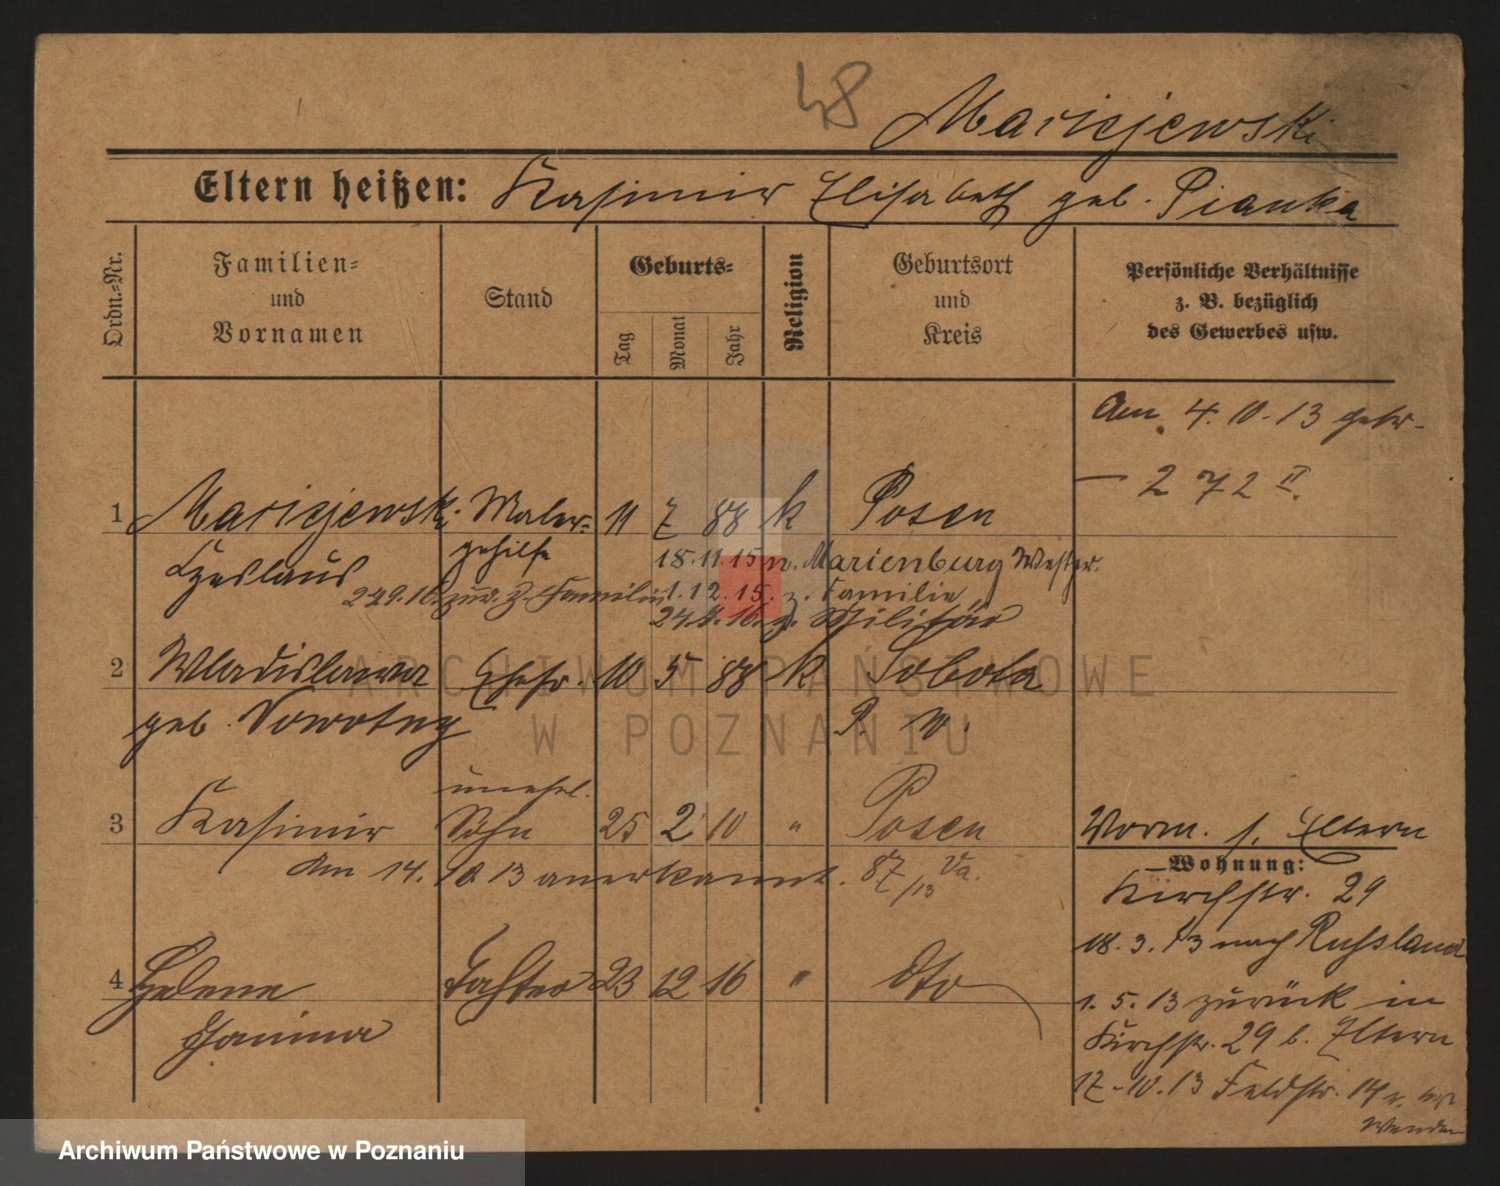 48
Maricejewski
Eltern heißen: Kasimir Elisabeth geb. Pianka
Ordn.-Nr.
Familien-
und
Vornamen
Stand
Geburts-
Tag
Monat
Jahr
Religion
Geburtsort
und
Kreis
Persönliche Verhältnisse
z. B. bezüglich
des Gewerbes usw.
Am 4.10.13 getr.
272 II.
1 Maricejewski Maler- 11 7 88 k Posen
Czeslaus gehilfe 18.11.15 n. Marienburg Westpr.
zur. z. Familie 1.12.15. z. Familie
z. Militär
2 Wladislawa Ehefr. 10 5 88 k Sobota
geb. Nowotny P. W.
3 Kasimir unehel. Sohn 25 2 10 " Posen
Am 14. 10 13 anerkannt. 87/13 Va.
Vorm. s. Eltern
Wohnung:
Kirchstr. 29
18.3.13 nach Russland
4 Helene Tochter 23 12 16 " dto
Janina
1.5.13 zurück in
Kirchstr. 29 b. Eltern
17.10.13 Feldstr. 14
ARCHIWUM PAŃSTWOWE
W POZNANIU
Archiwum Państwowe w Poznaniu